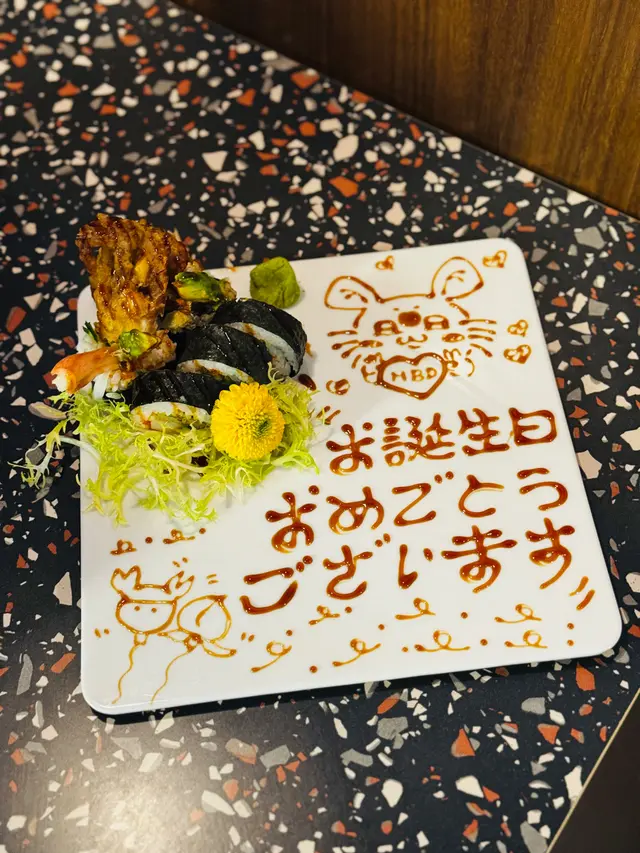 HBD
お誕生日
おめでとう
ございます